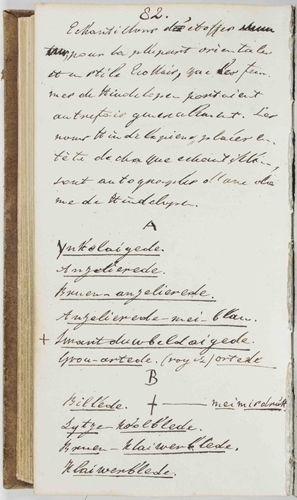 82.
Echantillons d'étoffes
pour la plupart orientales
et en stile Ecossais, que les fem-
mes de Hindelopen portaient
autrefois Les
noms Hindelopiens, placés en
tête de chaque echantillon,
sont autographes d'une da-
me de Hindelopen.
A
Ynkelaigede.
Angelierede.
Bruen-angelierede.
Angelierede-mei-blau.
+ Swart-duwbeldaigede.
Grou-artede. (royez) ortede
B
Billede. + — meimirdruk
Lytze-kdolblede.
Bruen-klaiwerblede.
Klaiwerblede.